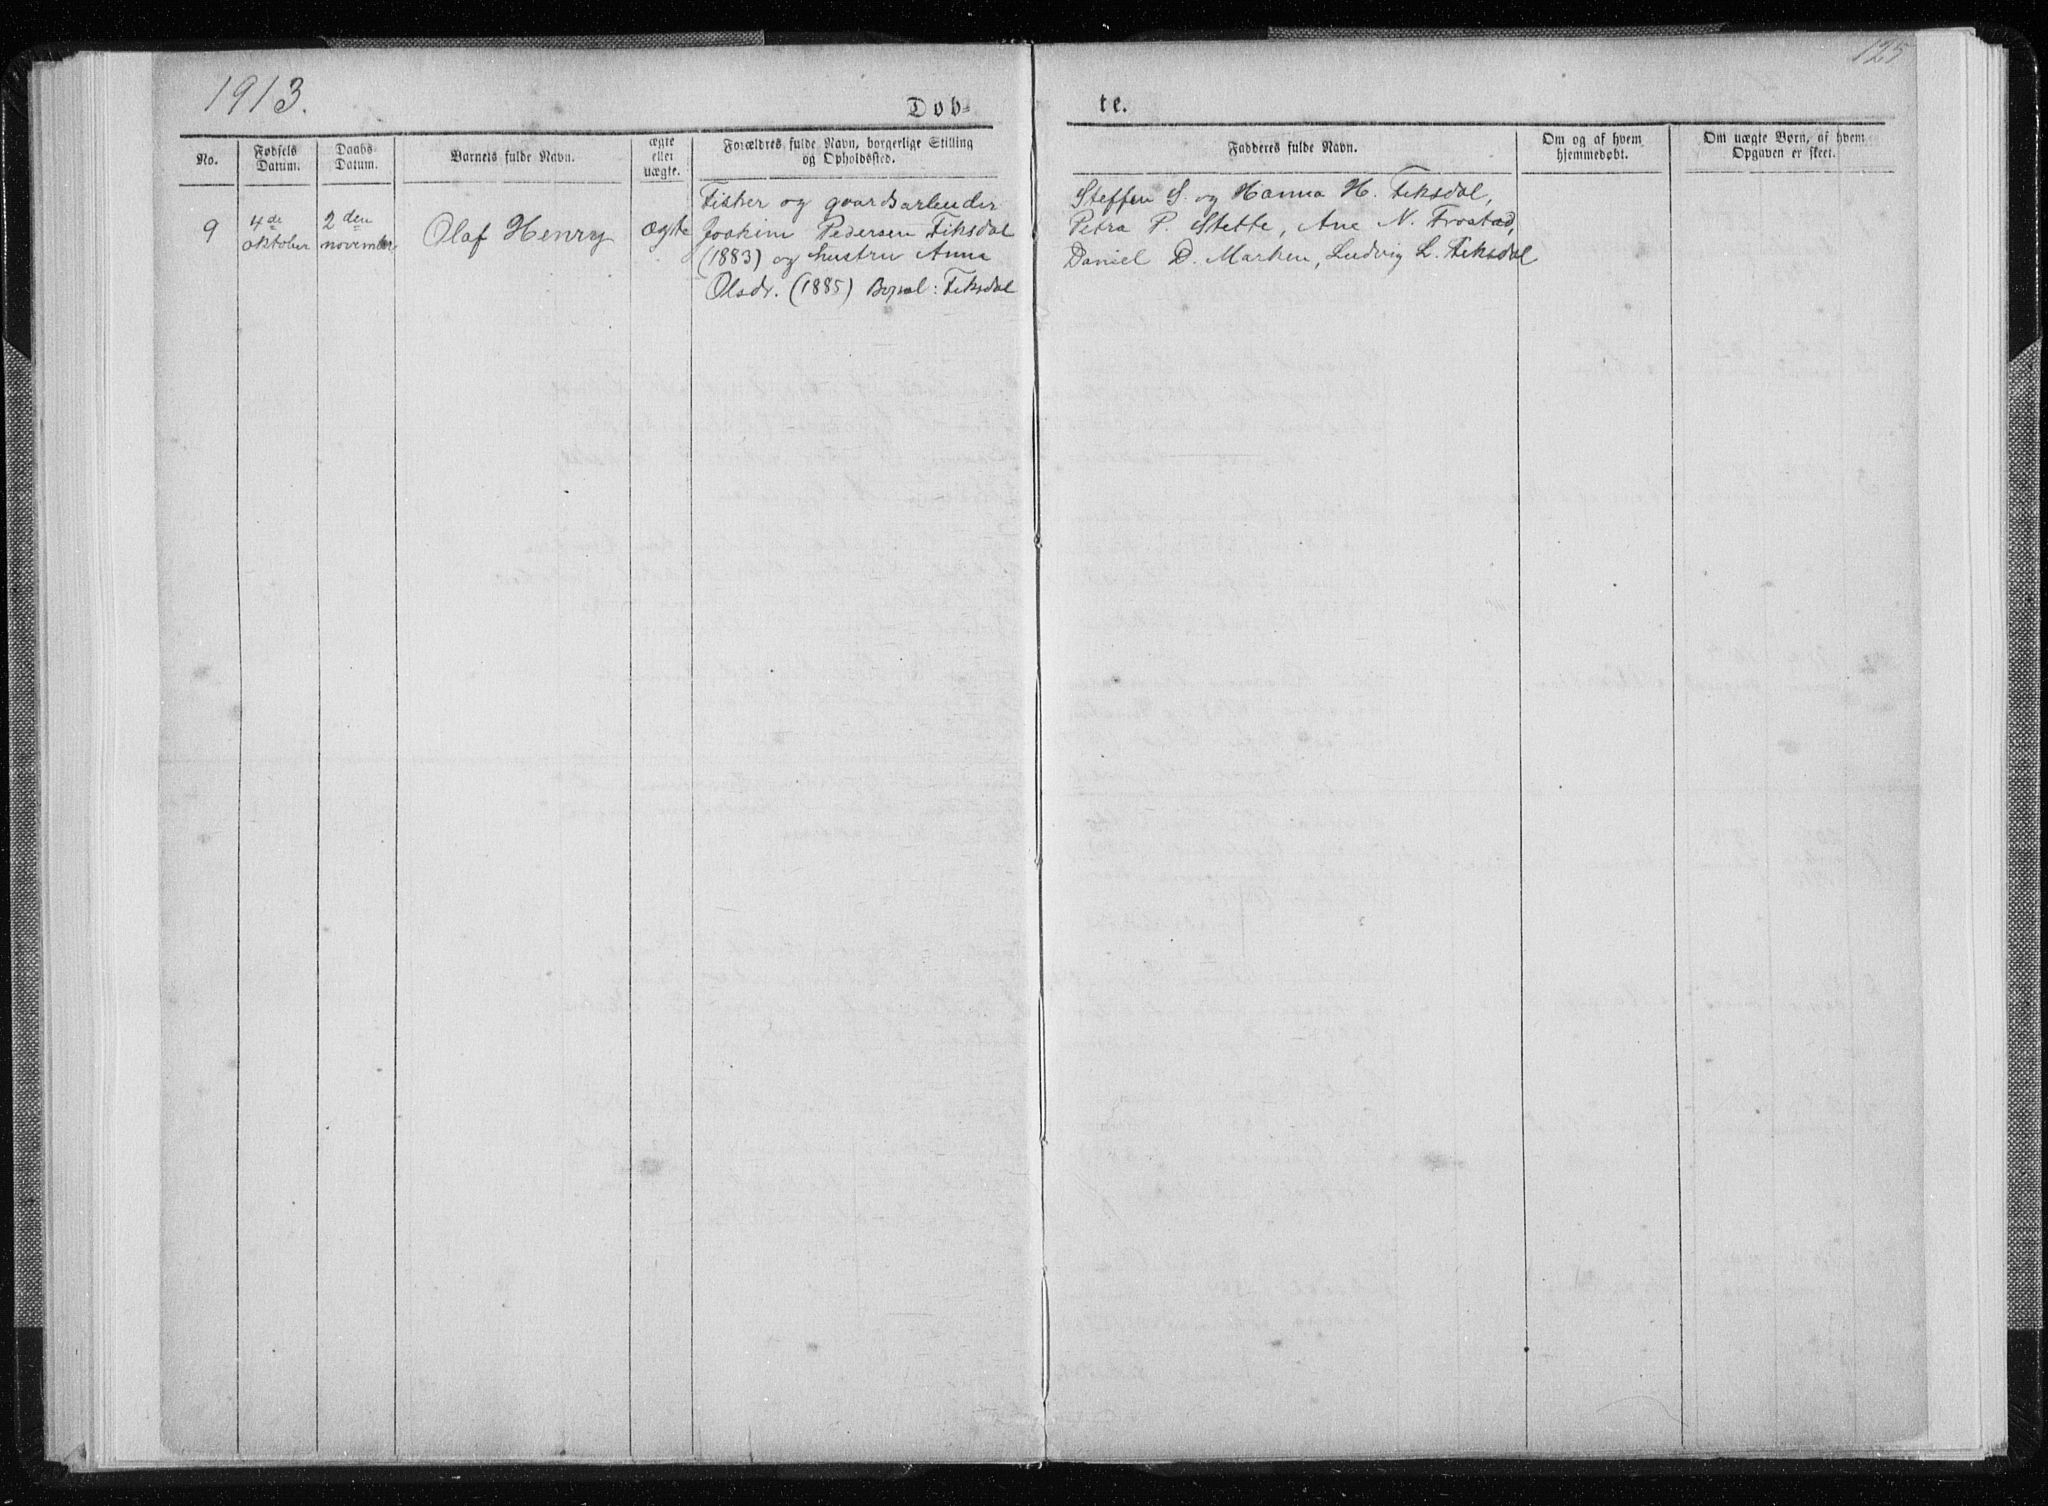 125
1913.
Døb-
te.
No.
Fødsels Datum.
Daabs Datum.
Barnets fulde Navn.
ægte eller uægte.
Forældres fulde Navn, borgerlige Stilling og Opholdssted.
Fadderes fulde Navn.
Om og af hvem hjemmedøbt.
Om uægte Børn, af hvem Opgaven er skeet.
9
4de oktober
2den november
Olaf Henry
ægte
Fisker og gaardsarbeider
Joakim Pedersen Fiksdal
(1883) og hustru Anna
Olsdr. (1885) Bopæl: Fiksdal
Steffen S. og Hanna H. Fiksdal,
Petra P. Stette, Ane N. Frostad,
Daniel D. Marken, Ludvig L. Fiksdal